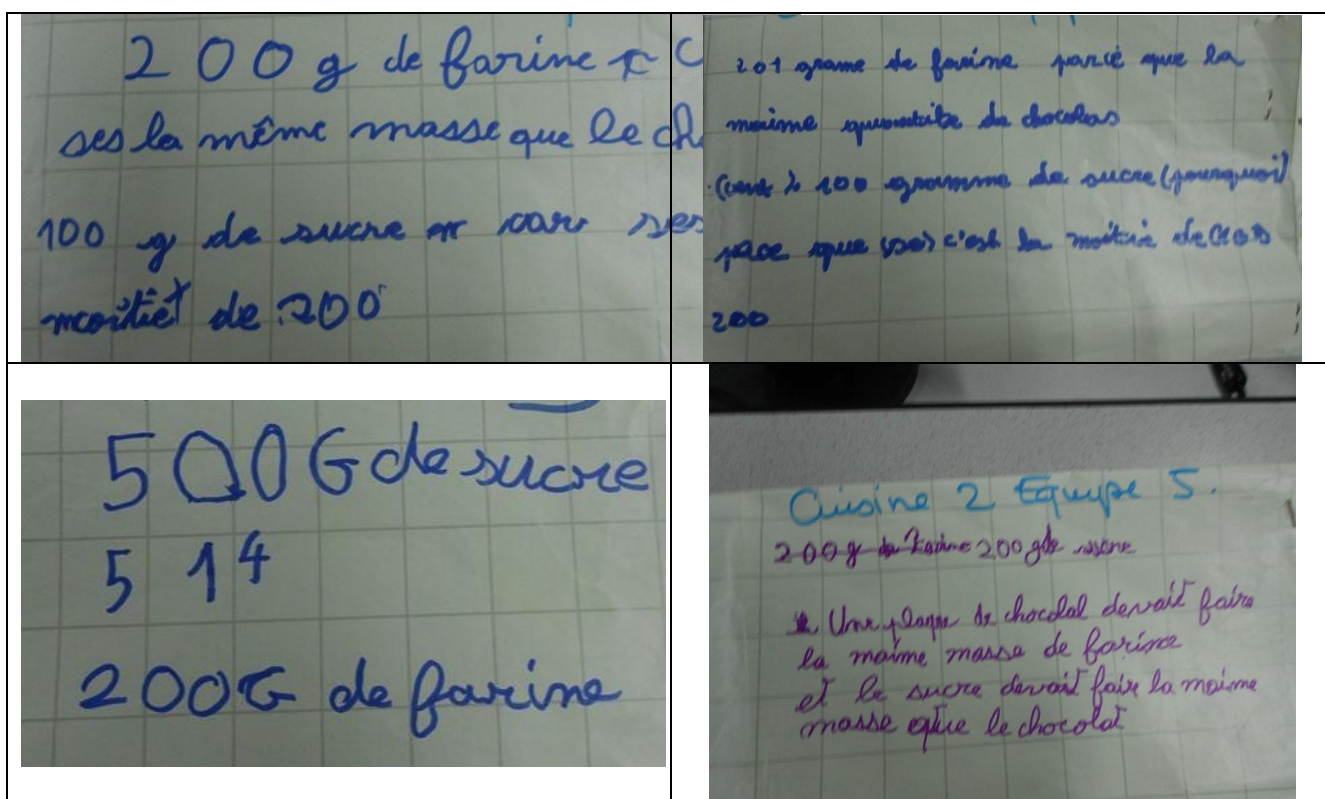 200 g de farine
ses la même masque que le ch
100 g de sucre car ses
moitiét de 200
201 grame de farine parce que la
maime quantite de chocolas
100 gramme de sucre (pourquoi)
pace que c'est la moitié de
200
500G de sucre
5 14
200G de farine
Cuisine 2 Equipe 5.
200g de Farine 200g de sucre
Une plaque de chocolat devait faire
la maime masse de farine
et le sucre devait faire la maime
masse que le chocolat